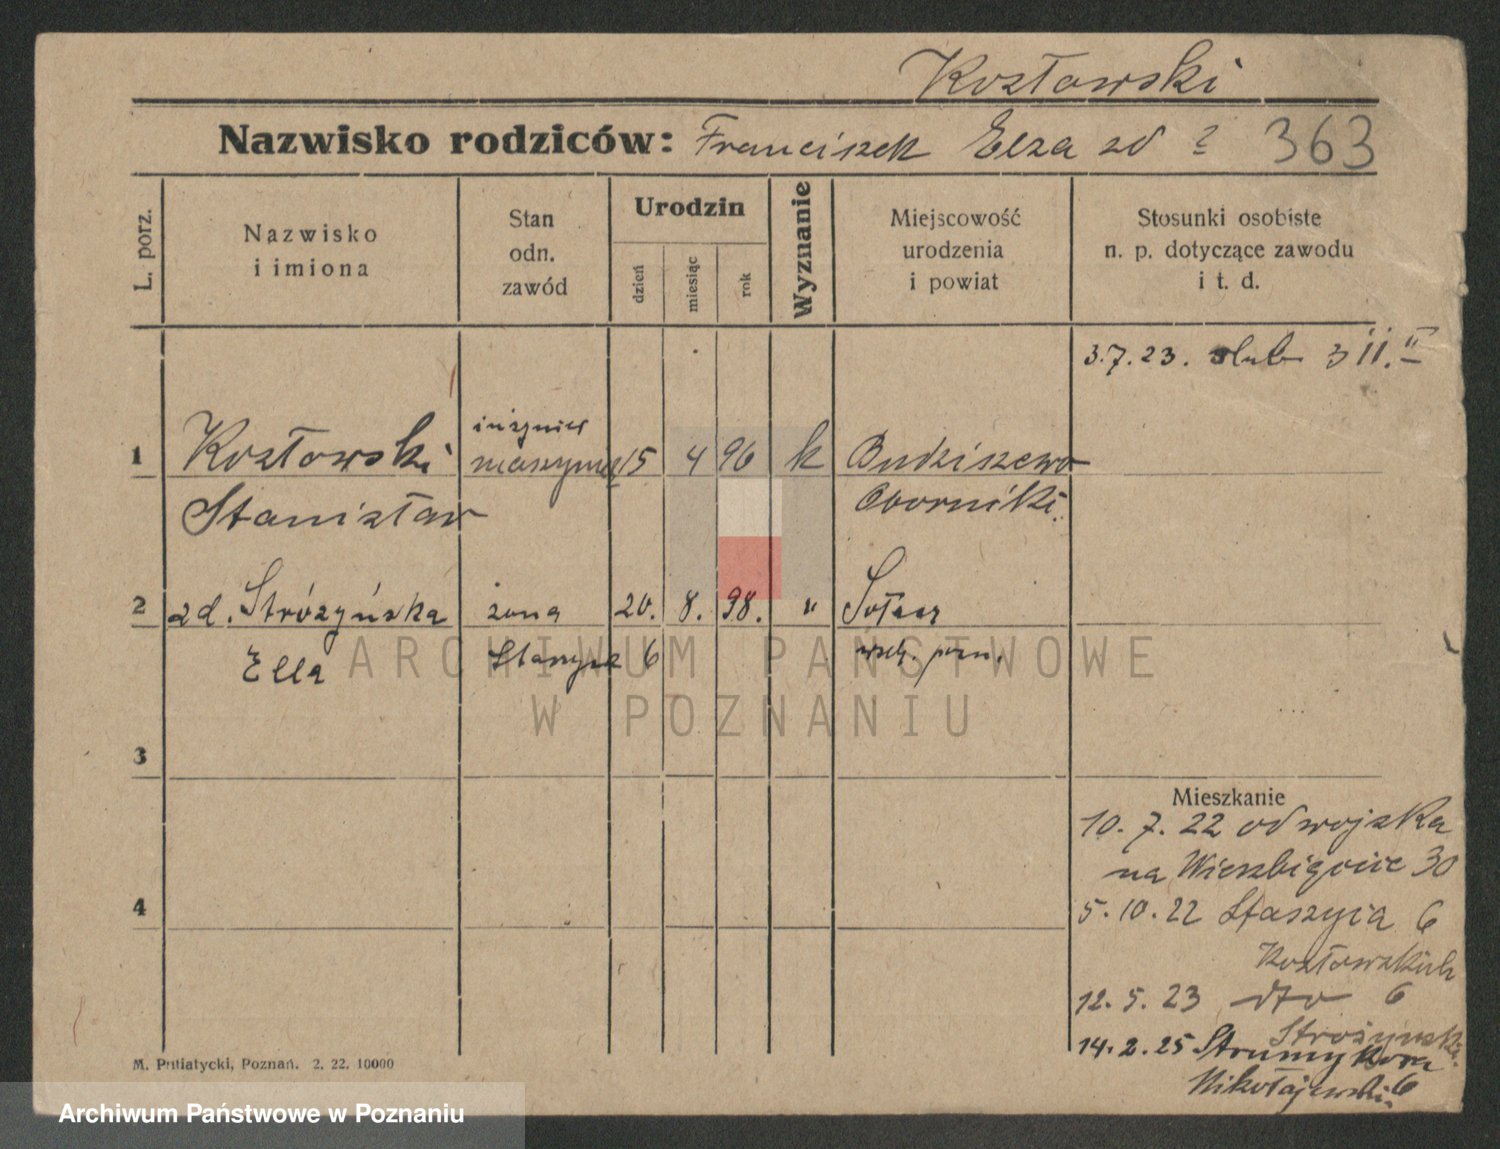 Kozłowski
Nazwisko rodziców: Franciszek Elza zd ? 363
L. porz.
Nazwisko i imiona
Stan odn. zawód
Urodzin
dzień
miesiąc
rok
Wyznanie
Miejscowość urodzenia i powiat
Stosunki osobiste n. p. dotyczące zawodu i t. d.
3.7.23. ślub
1 Kozłowski inżynier 15 4 96 k Budziszewo
Stanisław Oborniki.
2 zd. Stróżyńska żona 20. 8. 98. " Sołacz
Ella Staszyca 6
3
Mieszkanie
10. 7. 22 od wojska
na Wierzbięcice 30
4
5. 10. 22 Staszyca 6
Kozłowskich
12. 5. 23 dto 6
Strożyńska
14. 2. 25 Strumykowa
Mikołajewski 6
M. Putiatycki, Poznań. 2. 22. 10000
ARCHIWUM PAŃSTWOWE
W POZNANIU
Archiwum Państwowe w Poznaniu